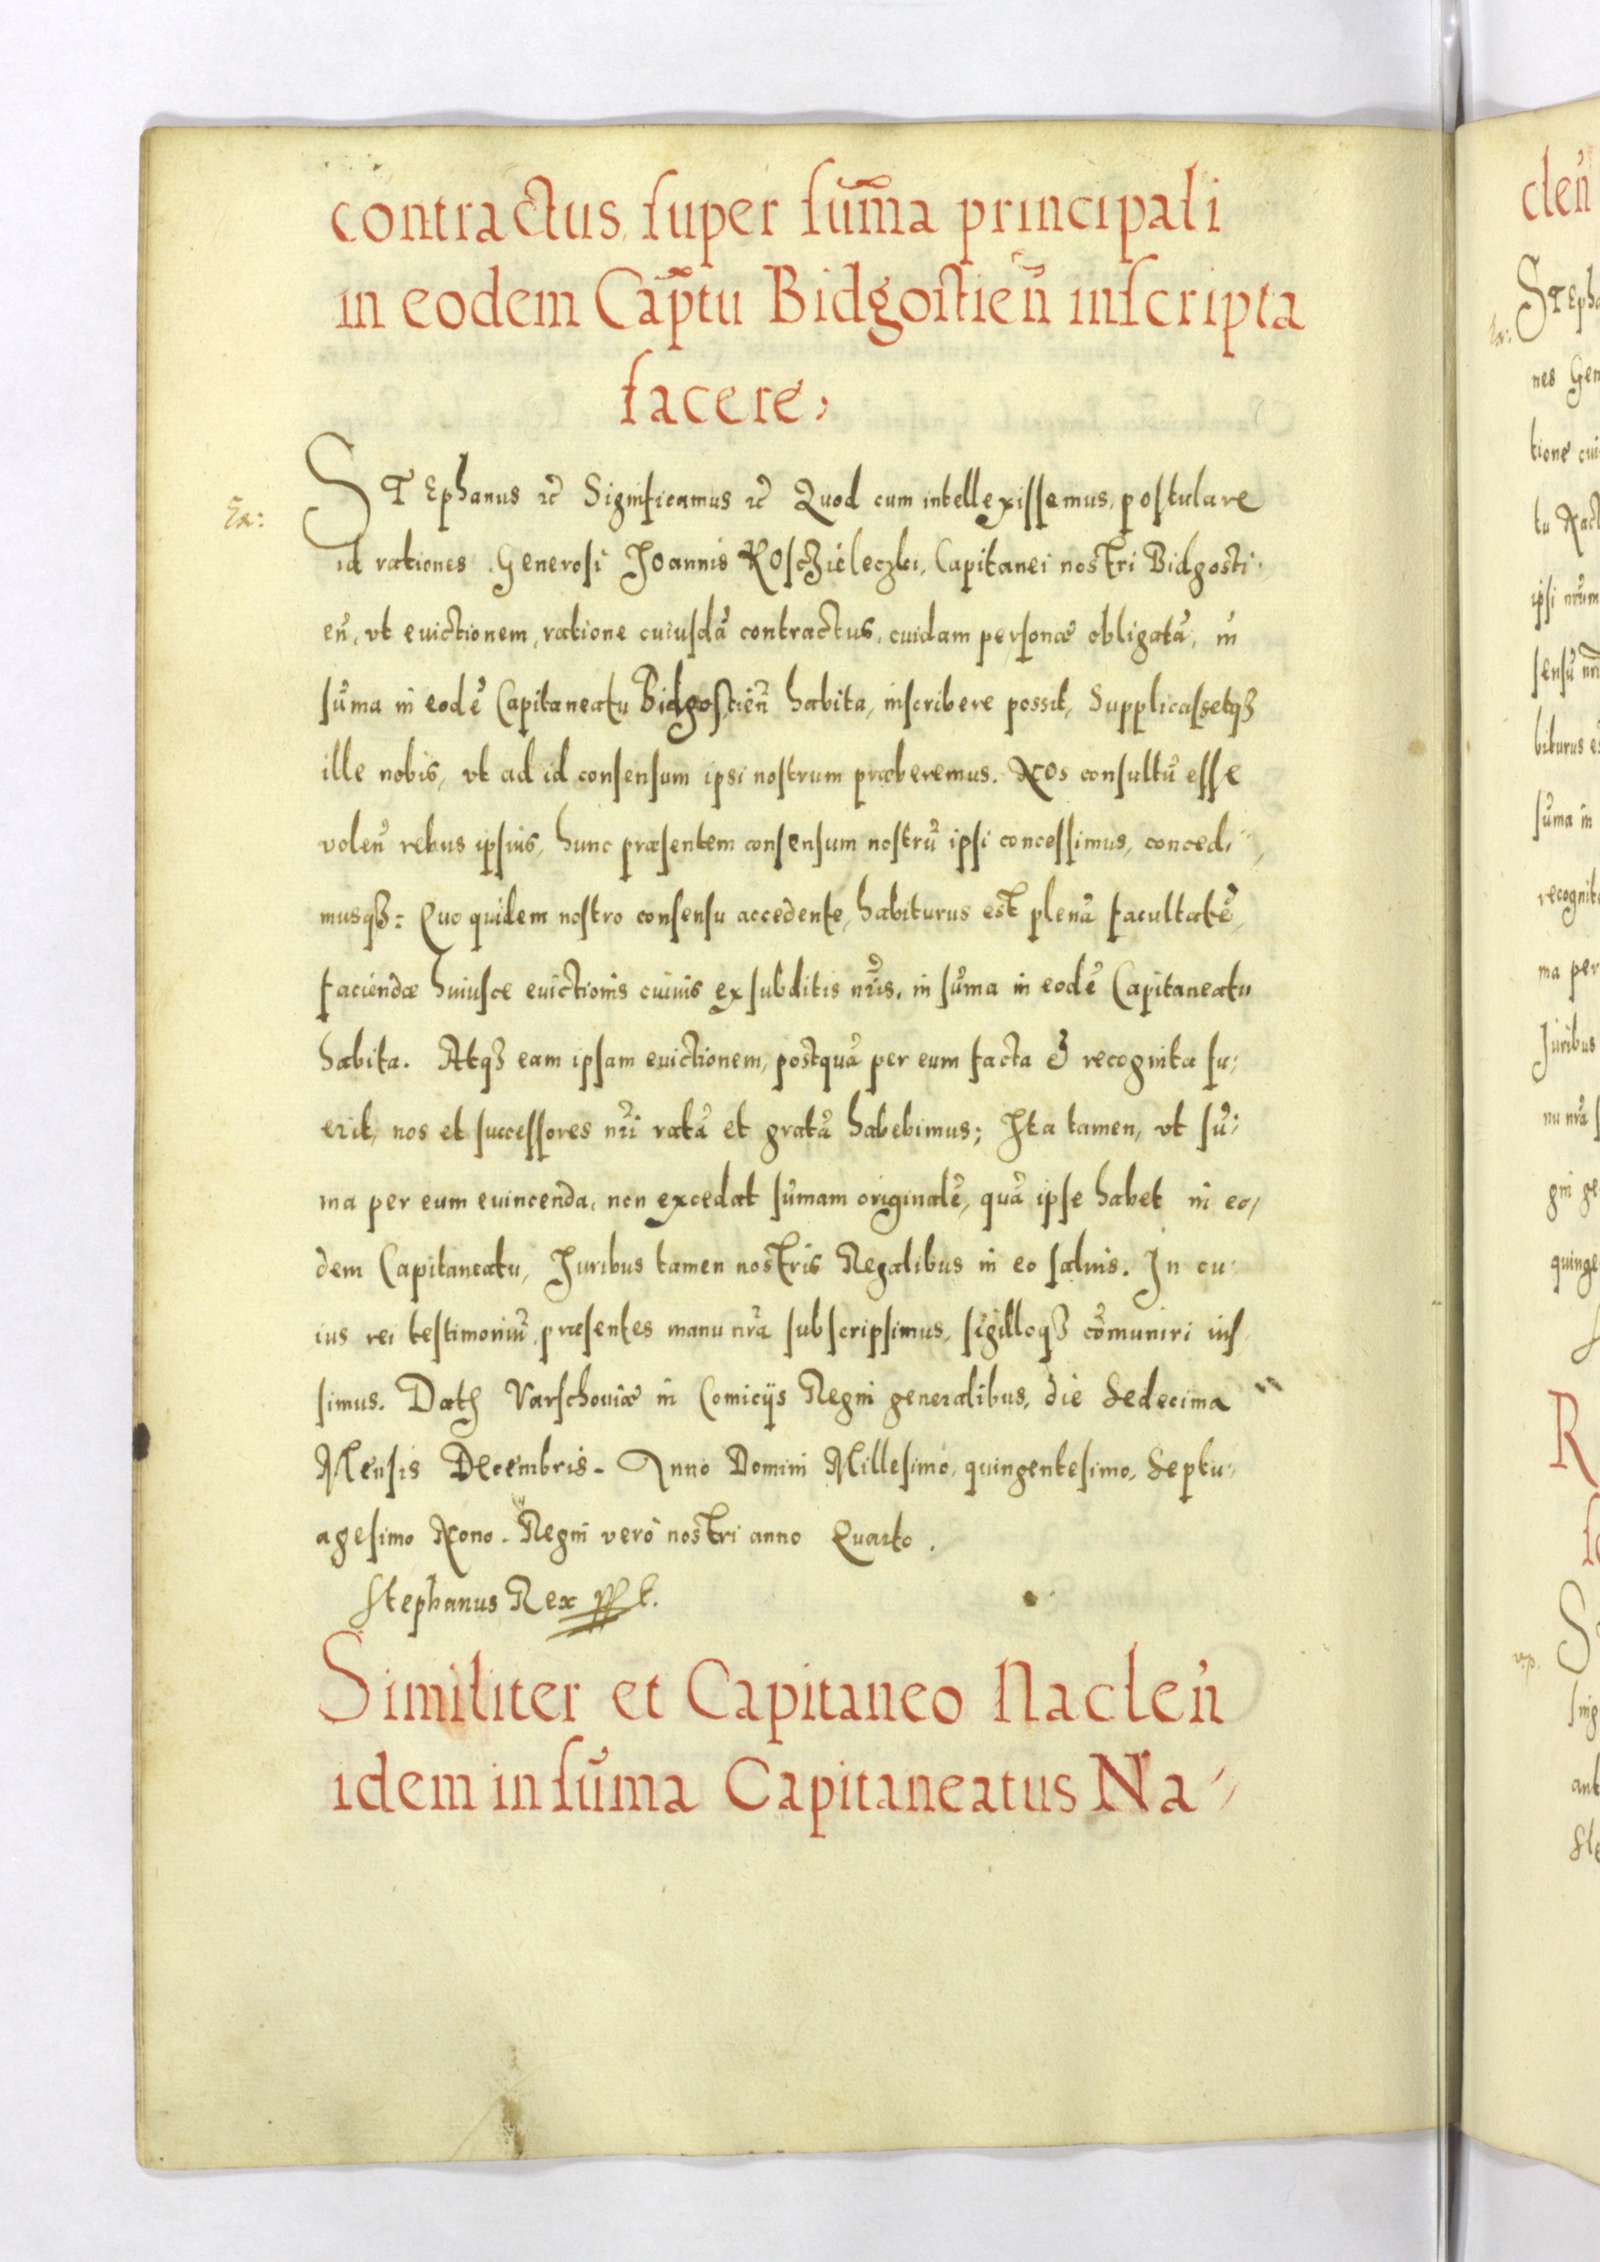 contractus, super sum̃a principali
in eodem Cap̃tu Bidgostieñ inscripta
facere,
Ex: STEphanus ꝛc̃ Significamus ꝛc̃ Quod cum intellexissemus, postulare
id rationes Generosi Joannis Kosczieleczki, Capitanei nostri Bidgosti-
eñ, vt euictionem, ratione cuiusdã contractus, cuidam personæ obligatã, in
sũma in eodẽ Capitaneatu Bidgostieñ habita, inscribere possit, Supplicassetqȝ
ille nobis, vt ad id consensum ipsi nostrum præberemus. Nos consultũ esse
voleñ rebus ipsius, hunc præsentem consensum nostrũ ipsi concessimus, concedi-
musqȝ: Quo quidem nostro consensu accedente, habiturus est plenã facultatẽ,
faciendæ huiusce euictionis cuiuis ex subditis nr̃is, in sũma in eodẽ Capitaneatu
habita. Atqȝ eam ipsam euictionem, postquã per eum facta & recognita fu-
erit, nos et successores nr̃i ratã et gratã habebimus; Ita tamen, vt sũ-
ma per eum euincenda, non excedat sũmam originalẽ, quã ipse habet in eo-
dem Capitaneatu, Juribus tamen nostris Regalibus in eo saluis. In cu-
ius rei testimoniũ, præsentes manu nr̃a subscripsimus, sigilloqȝ cõmuniri ius-
simus. Datȝ Varschouiæ in Comicijs Regni generalibus, die Sedecima
Mensis Decembris. Anno Domini Millesimo, quingentesimo, Septu-
agesimo Nono. Regni verò nostri anno Quarto.
Stephanus Rex sst.
Similiter et Capitaneo Nacleñ
idem in sũma Capitaneatus Na-
cleñ
STEpha
Ex:
nes Gen
tione cui
tu Nact
ipsi nr̃um
sensũ nr̃
biturus es
sũma in
recognita
ma per
Juribus
nu nr̃a s
gni ge
quinge
R
S
sing
ant
Ste